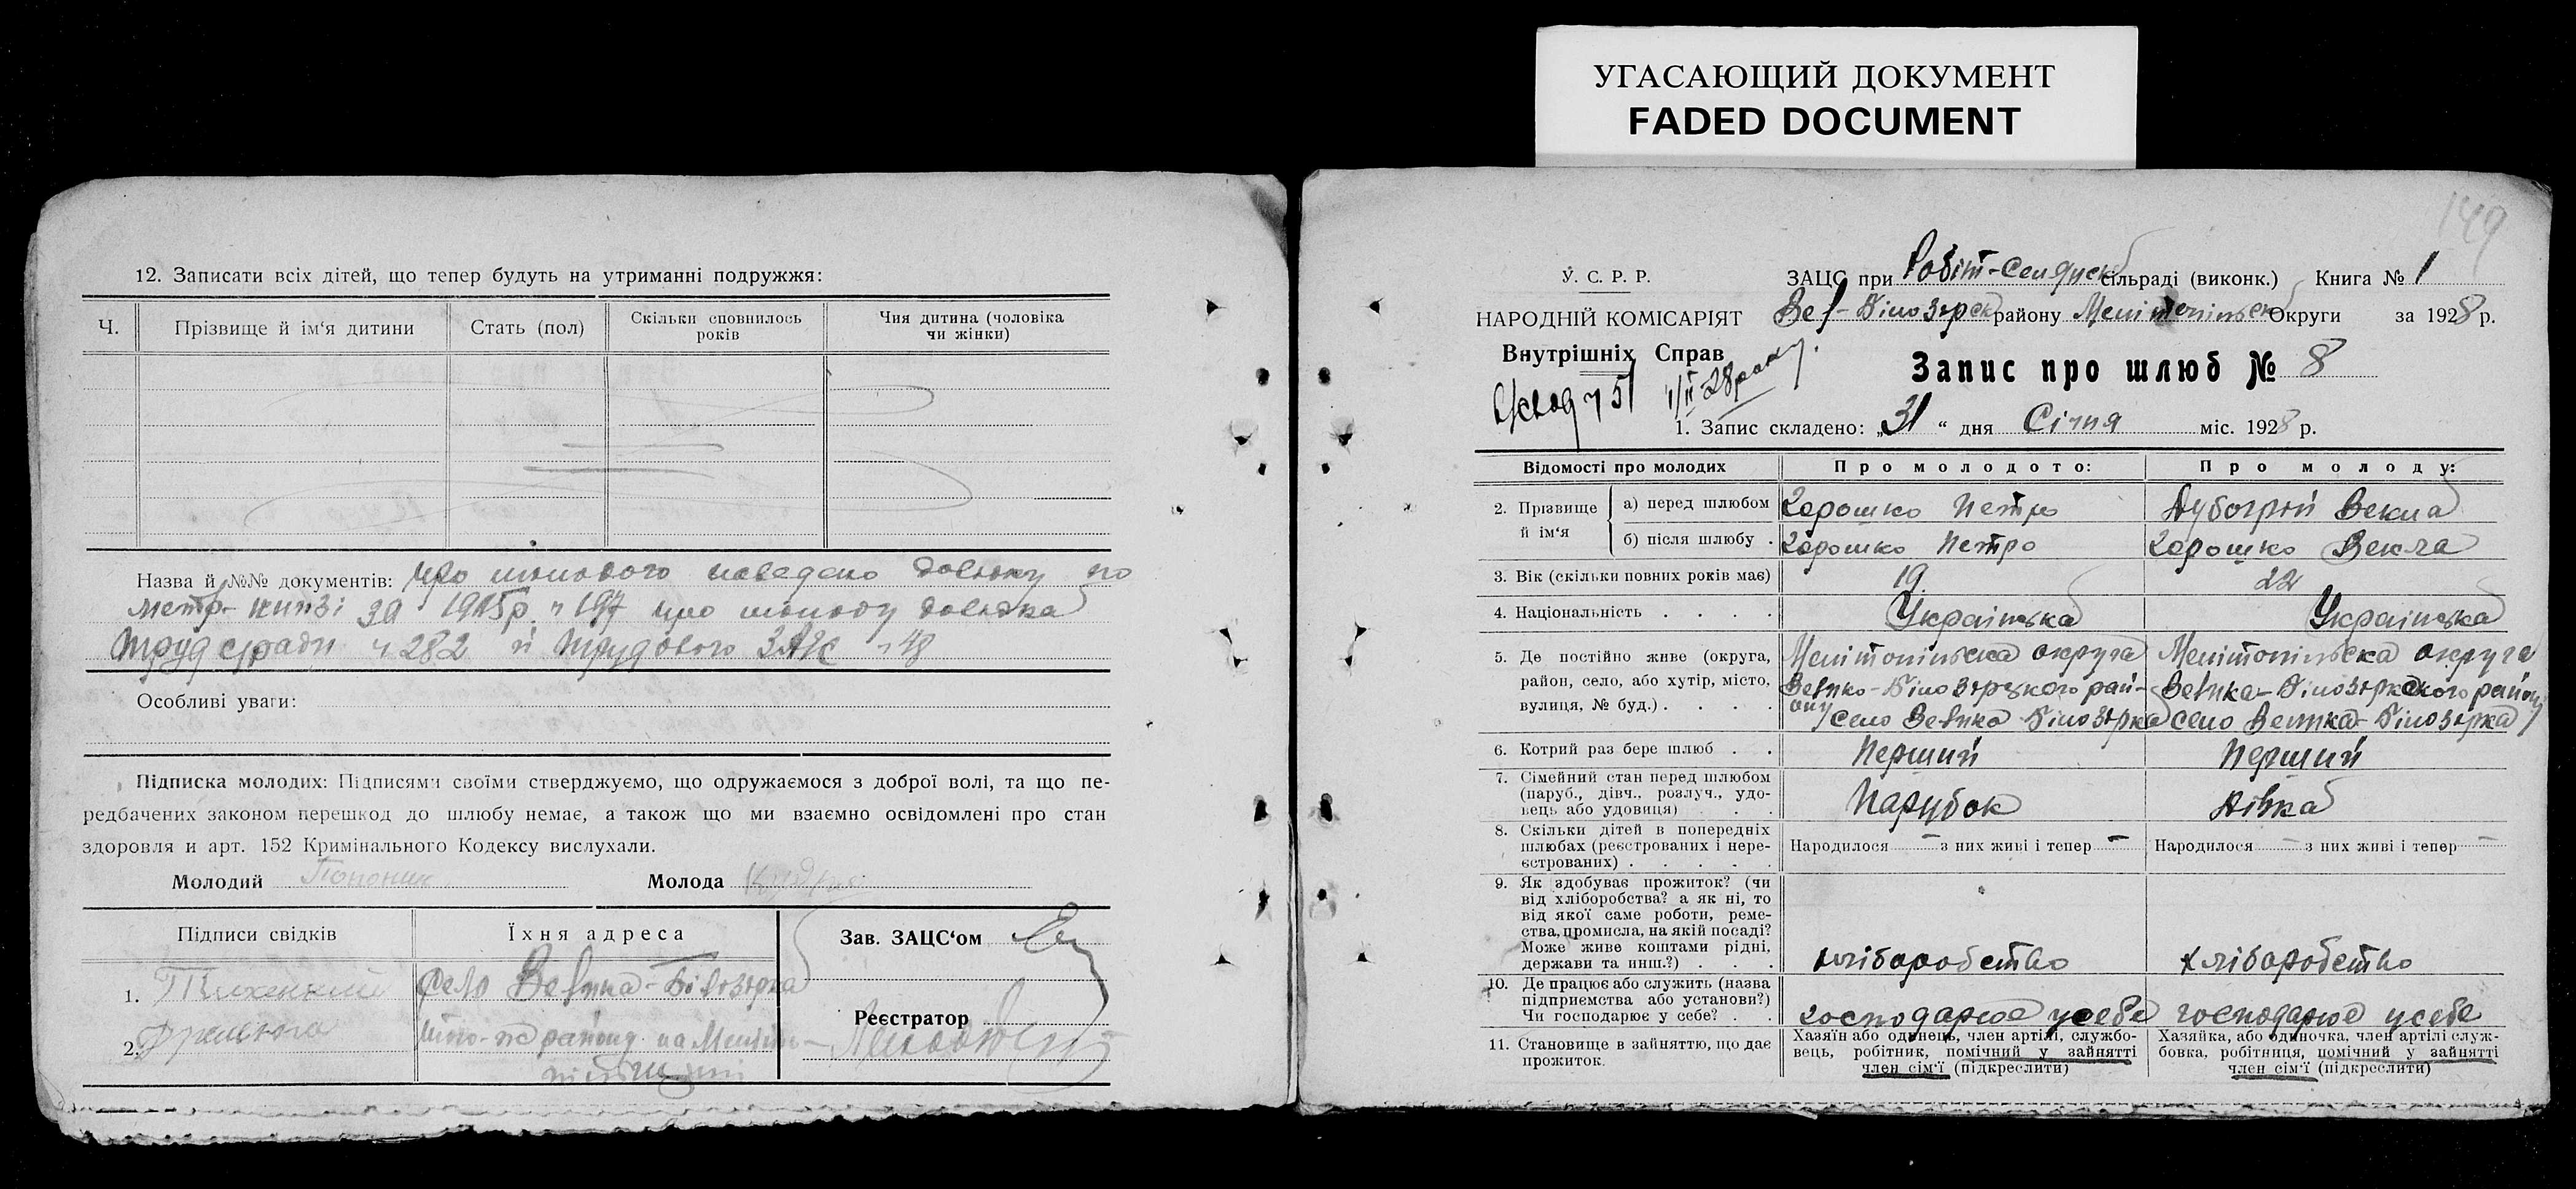 УГАСАЮЩИЙ ДОКУМЕНТ
FADED DOCUMENT
12. Записати всіх дітей, що тепер будуть на утриманні подружжя:
Ч. Прізвище й ім‘я дитини Стать (пол) Скільки сповнилось років Чия дитина (чоловіка чи жінки)
Назва й №№ документів: про молодого наведено довідку по
метр- книзі за 1915р. ч 197 про молоду довідка
ч 282 й ЗАК ч 48
Особливі уваги:
Підписка молодих: Підписями своїми стверджуємо, що одружаємося з доброї волі, та що пе-
редбачених законом перешкод до шлюбу немає, а також що ми взаємно освідомлені про стан
здоровля и арт. 152 Кримінального Кодексу вислухали.
Молодий Молода
Підписи свідків Їхня адреса
Зав. ЗАЦС‘ом
1. село Велика-Білозірка
2. того-ж району на
Реєстратор
149
У. С. Р. Р.
НАРОДНІЙ КОМІСАРІЯТ
Внутрішніх Справ
ч 51 1/II 28 року.
ЗАЦС при сільраді (виконк.) Книга № 1
Вел-Білозірськ району Мелітопільськ Округи за 1928 р.
Запис про шлюб № 8
1. Запис складено: „31“ дня Січня міс. 1928 р.
Відомості про молодих Про молодого: Про молоду:
2. Прізвище й ім‘я
а) перед шлюбом Хорошко Петро Векла
б) після шлюбу . Хорошко Петро Хорошко Векла
3. Вік (скільки повних років має) 19 22
4. Національність . . . . Українська Українська
5. Де постійно живе (округа, район, село, або хутір, місто, вулиця, № буд.) . . . .
Мелітопільська округа Велико-Білозірського рай-
ону село Велика Білозірка
Мелітопільська округа Велика-Білозірського району
село Велика-Білозірка
6. Котрий раз бере шлюб . . Перший Перший
7. Сімейний стан перед шлюбом (паруб., дівч., розлуч., удо-
вець або удовиця) . . Парубок Дівка
8. Скільки дітей в попередніх шлюбах (реєстрованих і нере-
єстрованих) . . . . .
Народилося — з них живі і тепер — Народилося — з них живі і тепер —
9. Як здобуває прожиток? (чи від хліборобства? а як ні, то
від якої саме роботи, реме-
ства, промисла, на якій посаді?
Може живе коштами рідні,
держави та инш.?) . . . хліборобство хліборобство
10. Де працює або служить (назва підприємства або установи?)
Чи господарює у себе? . . господарює у себе господарює у себе
11. Становище в зайняттю, що дає прожиток.
Хазяїн або одинець, член артілі, службо-
вець, робітник, помічний у зайнятті
член сім‘ї (підкреслити)
Хазяйка, або одиночка, член артілі служ-
бовка, робітниця, помічний у зайнятті
член сім‘ї (підкреслити)